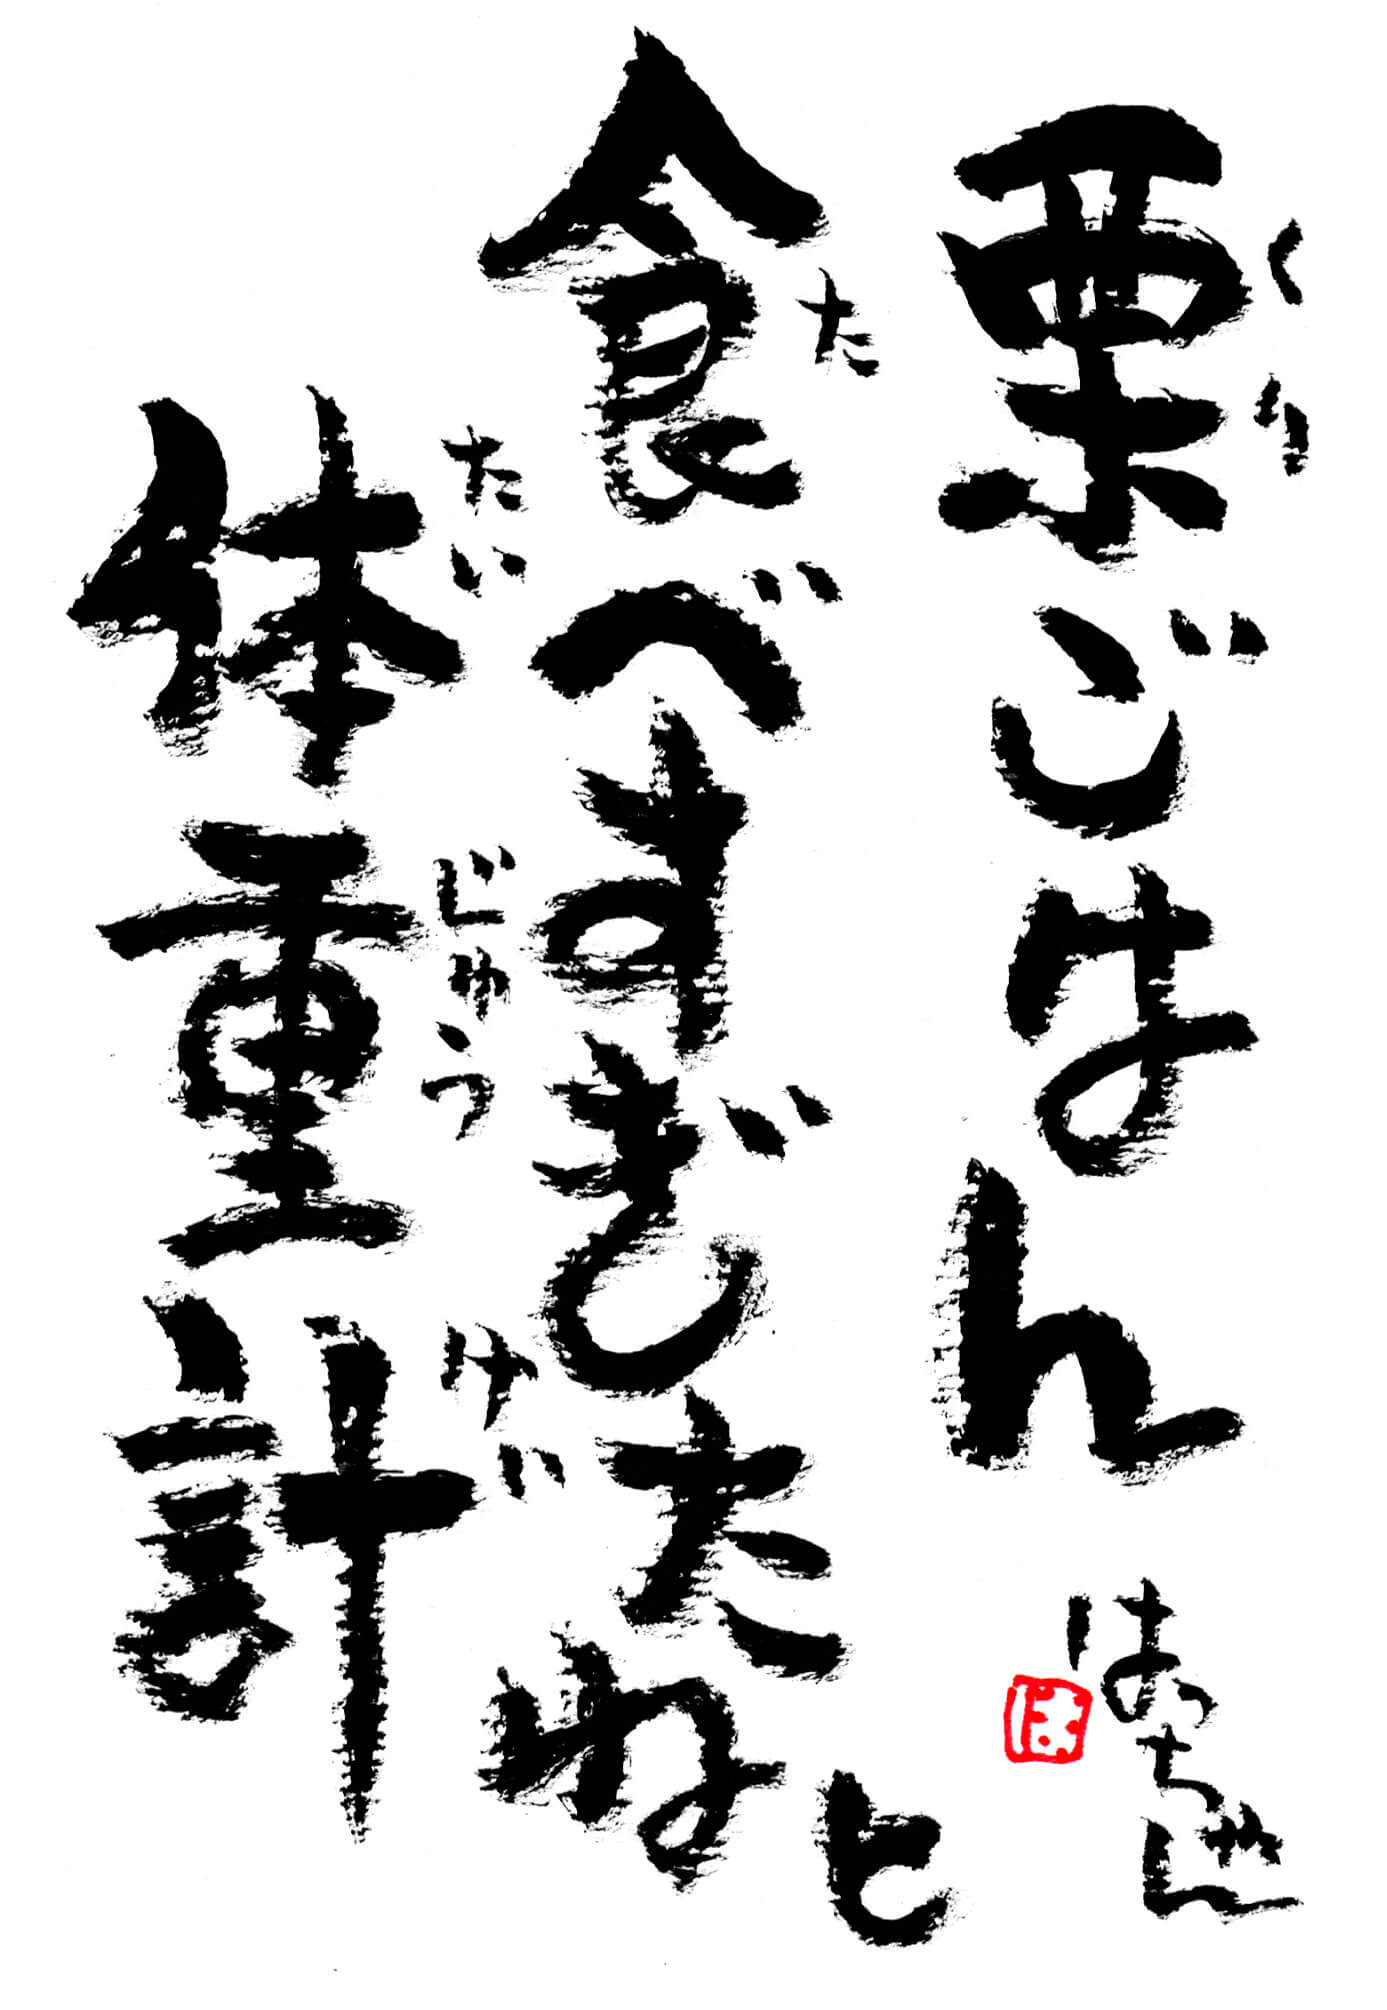 栗ごはん
食べすぎたねと
体重計
くり
た
たい
じゅう
けい
はっちゃん